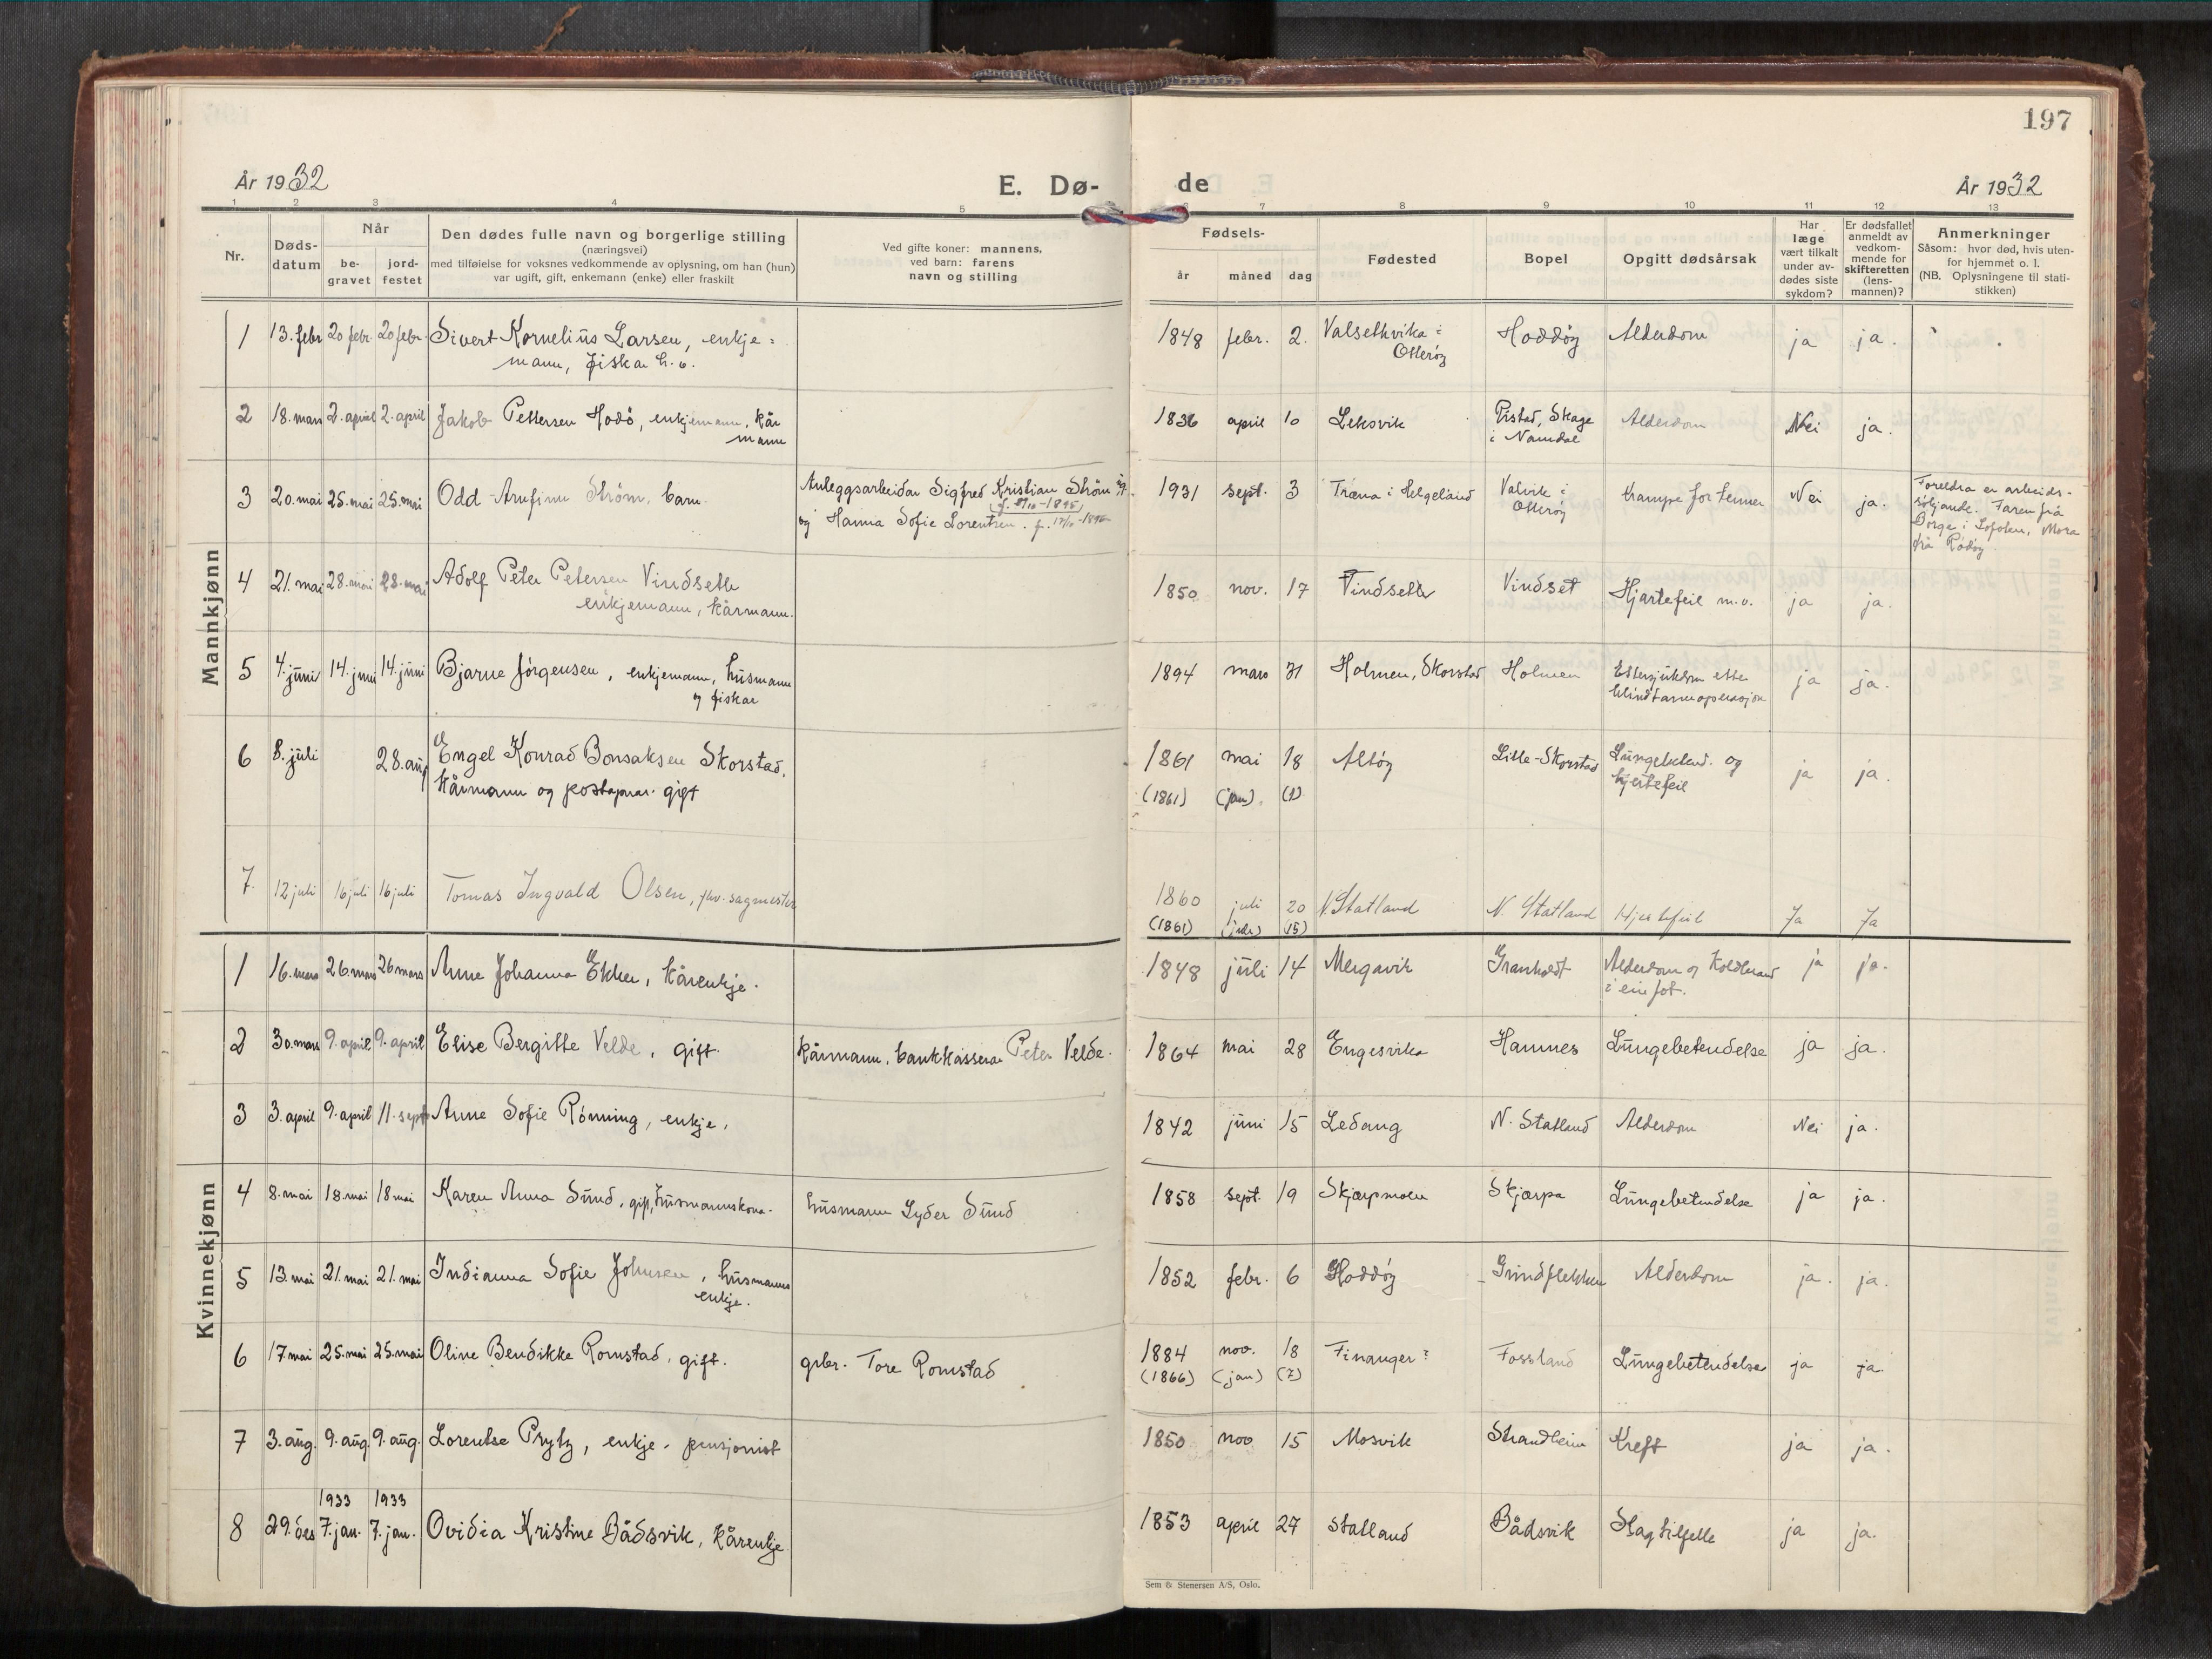 197
År 1932
E. Dø-
de
År 1932
1 2 3 4 5 6 7 8 9 10 11 12 13
Nr.
Døds-
datum
Når
be-
gravet
jord-
festet
Den dødes fulle navn og borgerlige stilling
(næringsvei)
med tilføielse for voksnes vedkommende av oplysning, om han (hun)
var ugift, gift, enkemann (enke) eller fraskilt
Ved gifte koner: mannens,
ved barn: farens
navn og stilling
Fødsels-
år måned dag
Fødested
Bopel
Opgitt dødsårsak
Har
læge
vært tilkalt
under av-
dødes siste
sykdom?
Er dødsfallet
anmeldt av
vedkom-
mende for
skifteretten
(lens-
mannen)?
Anmerkninger
Såsom: hvor død, hvis uten-
for hjemmet o. l.
(NB. Oplysningene til stati-
stikken)
Mannkjønn
1 13. febr 20 febr. 20 febr. Sivert Kornelius Larsen, enkje=
mann, fiskar h. v.
1848 febr. 2. Valsethvika i
Otterøy
Hoddøy Alderdom ja ja.
2 18. mars 2. april 2. april Jakob Pettersen Hodö, enkjemann, kår
mann
1836 april 10 Leksvik
Pistad, Skage
i Namdal
Alderdom Nei ja.
3 20. mai 25. mai 25. mai Odd Arnfinn Ström, barn.
Anleggsarbeidar Sigfred Kristian Ström
og Hanna Sofie Lorentzen.
1931 sept. 3 Træna i Helgeland
Valvik i
Otterøy
krampe for tenner Nei ja.
Foreldra er arbeids-
søkjande. Faren frå
Borge i Lofoten, Mora
frå Rødøy
4 21. mai 28. mai 28. mai Adolf Peter Petersen Vindseth
enkjemann, kårmann.
1850 nov. 17 Vindseth Vindset Hjartefeil m.v. ja ja.
5 4. juni 14. juni 14. juni Bjarne Jörgensen, enkjemann, husmann
og fiskar
1894 mars 31 Holmen, Skorstad Holmen
Ettersjukdom etter
blindtarmoperasjon
ja ja.
6 8. juli 28. aug Engel Konrad Bonsaksen Skorstad,
kårmann og postopnar. gift
1861 mai 18 Altøy Lille-Skorstad
Lungebetend. og
hjertefeil
ja ja.
(1861) (jan) (1)
7. 12 juli 16 juli 16 juli Tomas Ingvald Olsen, fhv. sagmester
1860 juli 20 N. Statland N. Statland Hjertefeil Ja Ja
(1861) (15)
Kvinnekjønn
1 16. mars 26. mars 26 mars Anne Johanna Ekker, kårenkje.
1848 juli 14 Mergavik Granholdt
Alderdom og koldbrand
i ein fot.
ja ja.
2 30. mars 9. april 9. april Elise Bergitte Velde, gift.
kårmann, bankkasserar Peter Velde.
1864 mai 28 Engesvika Hamnes Lungebetendelse ja ja.
3 3. april 9. april 11. sept Anne Sofie Rönning, enkje,
1842 juni 15 Ledang N. Statland Alderdom Nei ja.
4 8. mai 18. mai 18 mai Karen Anna Sund, gift, husmannskona.
husmann Lyder Sund
1858 sept. 19 Skjærpmoen Skjærpa Lungebetendelse ja ja.
5 13. mai 21. mai 21. mai Indianna Sofie Johnsen, husmanns
enkje.
1852 febr. 6 Hoddøy Grindflekken Alderdom ja. ja.
6 17 mai 25. mai 25. mai Oline Bendikke Romstad, gift.
grbr. Tore Romstad
1884 nov. 18 Finanger? Fossland Lungebetendelse ja ja.
(1866) (jan) (7)
7 3. aug. 9. aug. 9. aug. Lorentse Prytz, enkje, pensjonist
1850 nov 15 Mosvik Strandheim Kreft ja ja.
1933 1933
8 29. des 7. jan. 7. jan. Ovidia Kristine Bådsvik, kårenkje
1853 april 27 Statland Bådsvik Slagtilfelle ja ja.
Sem & Stenersen A/S, Oslo.